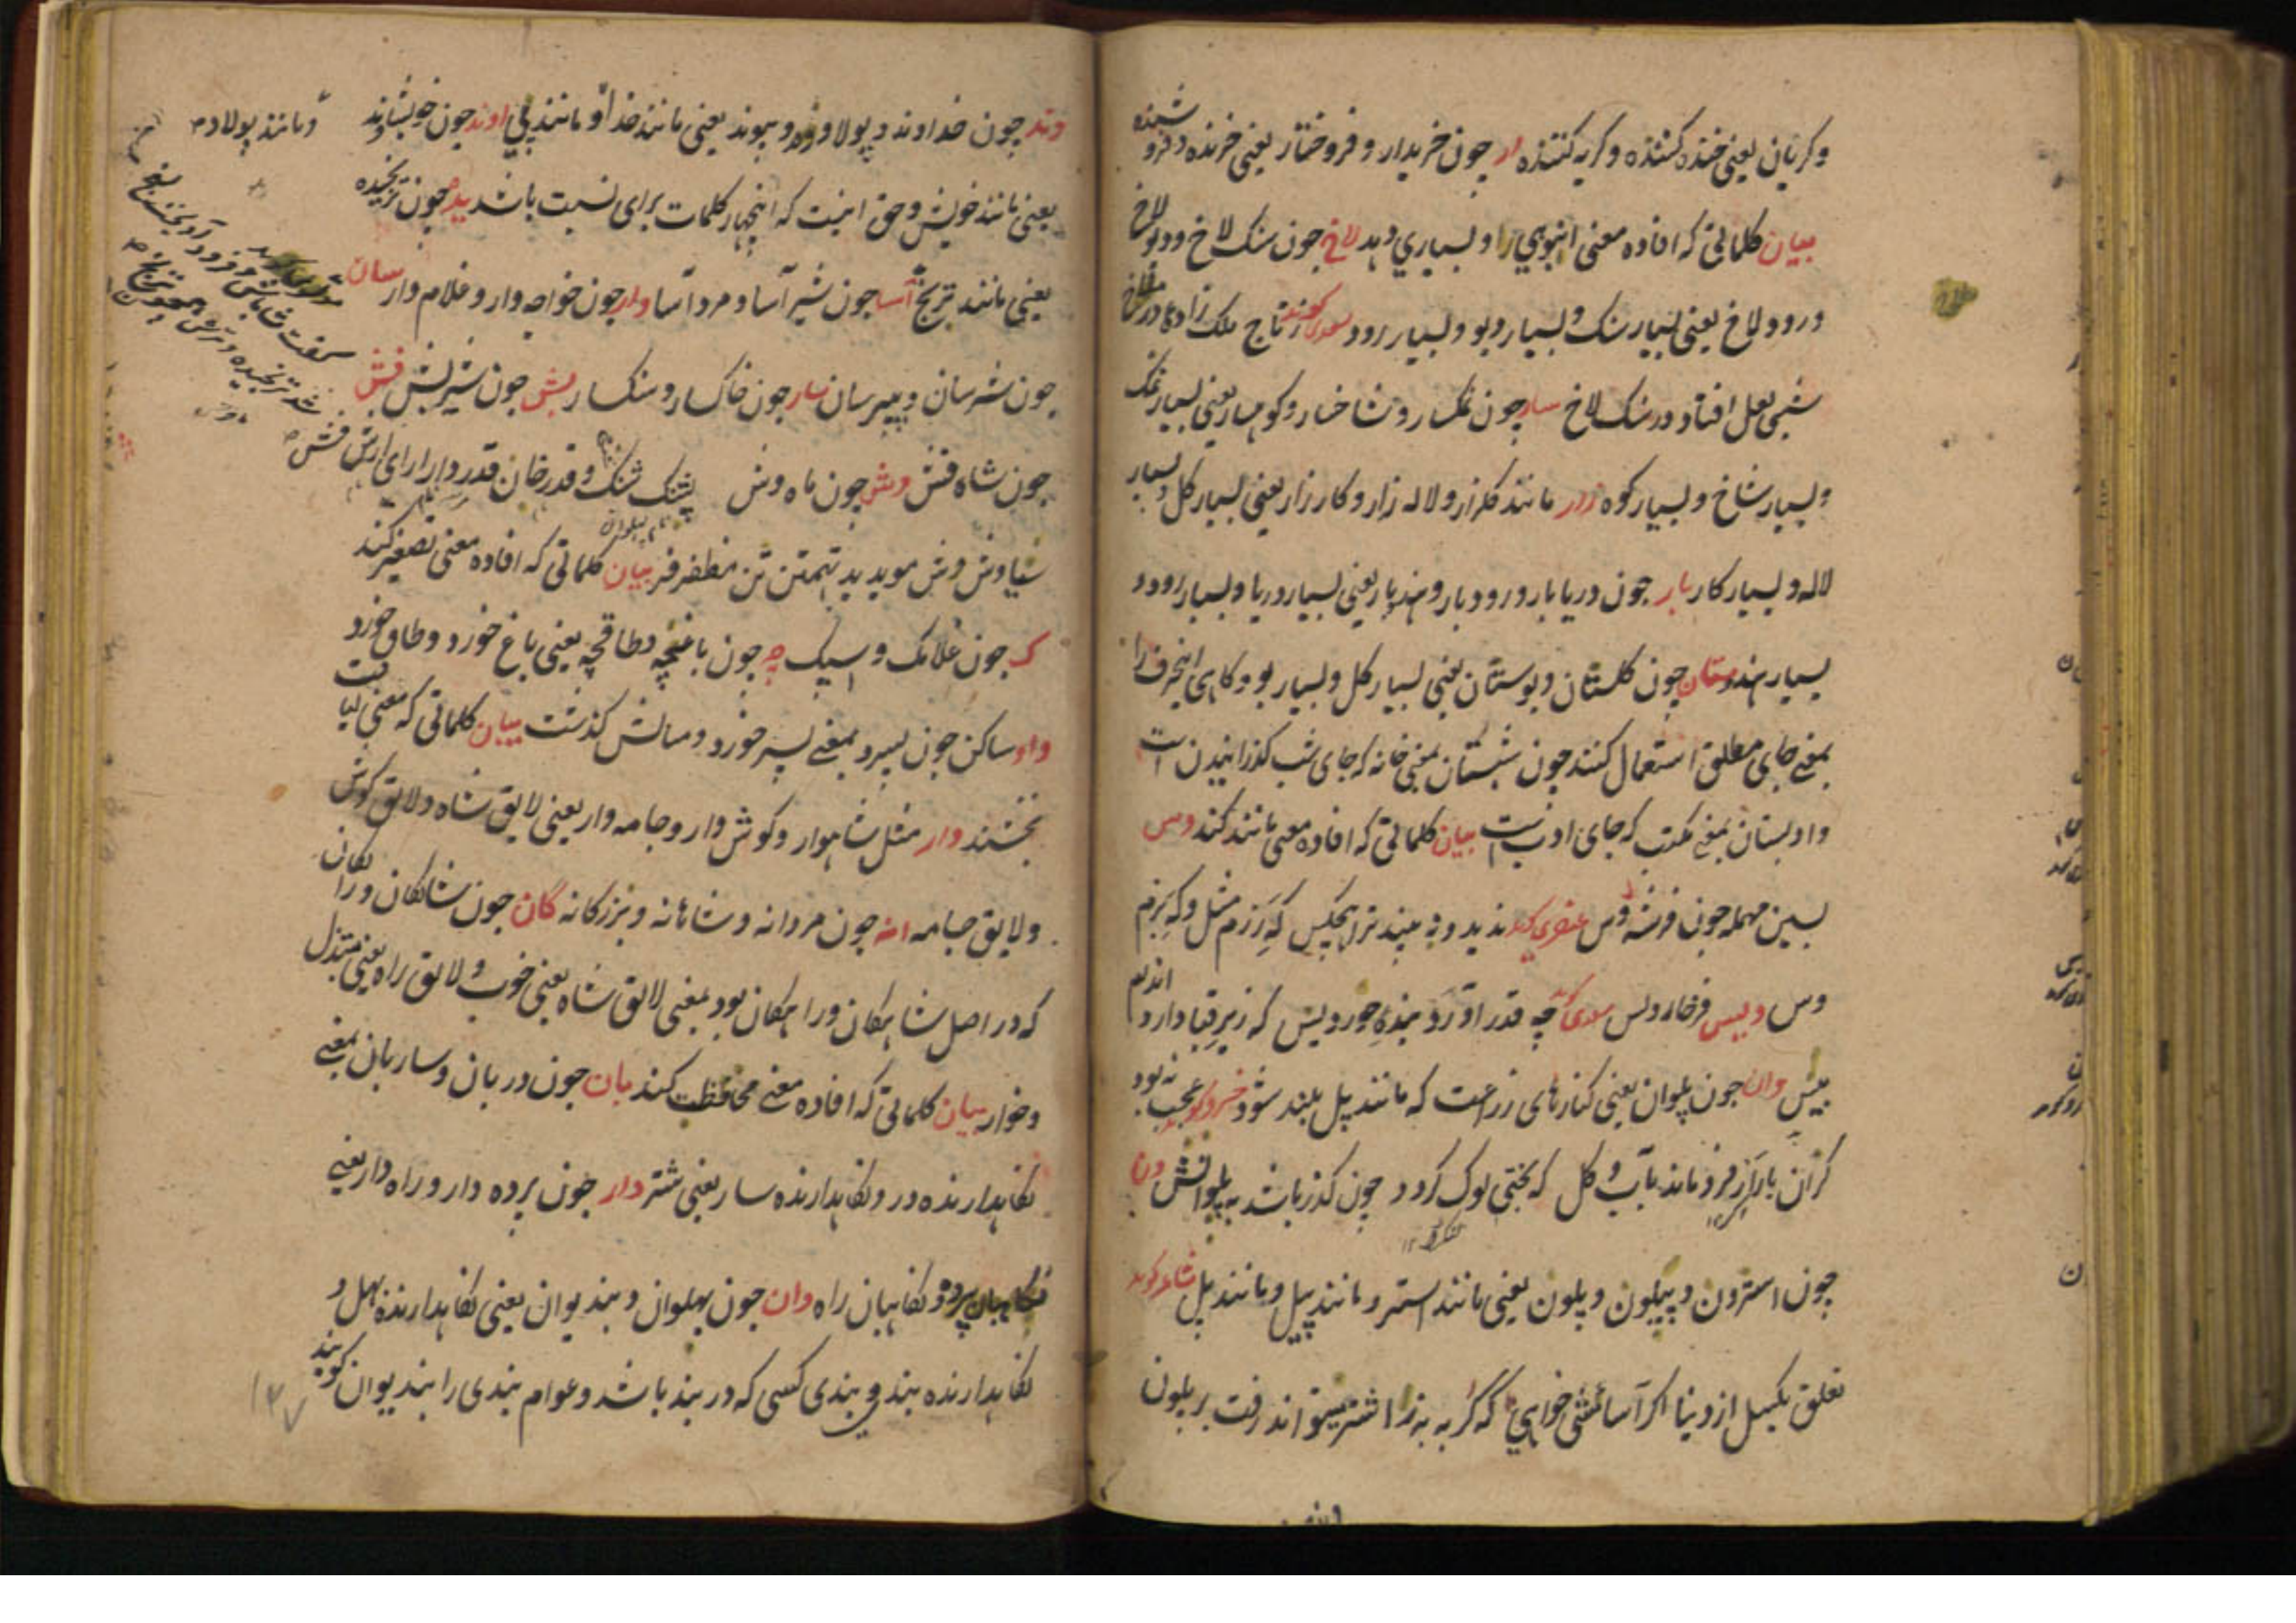 و گریان یعنی خنده کننده و گریه کننده ار چون خریدار و فروختار یعنی خرنده و فروشنده
بیان کلماتی که افاده معنی انبوهی را و بسیاری دهد لاخ چون سنک لاخ و دیولاخ
و رودلاخ یعنی بسیار سنک و بسیار دیو و بسیار رود سعدی گوید ز تاج ملک زاده در ملاخ
شبی لعل افتاد در سنک لاخ سار چون نمکسار و شاخسار و کوهسار یعنی بسیار نمک
و بسیار شاخ و بسیار کوه زار مانند کلزار و لاله زار و کارزار یعنی بسیار کل و بسیار
لاله و بسیار کار بار چون دریابار و رودبار و هندبار یعنی بسیار دریا و بسیار رود و
بسیار هند ستان چون کلستان و بوستان یعنی بسیار کل و بسیار بو و کاهی اینحرف را
بمعنی جای مطلق استعمال کنند چون شبستان بمعنی خانه که جای شب کذرانیدن است
و ادبستان بمعنی مکتب که جای ادب است بیان کلماتی که افاده معنی مانند کند وس
بسین مهمله چون فرشه وس عنصری کوید ندید و نه بیند ترا هیچکس که رزم مثل و که بزم
وس ویس فرخار ولس سعدی چه قدر آورد بنده حوردیس که زیر قبا دارد اندام
پیس وان چون پلوان یعنی کنارهای زراعت که مانند پل بلند شود خسرو کوید عجب نه بود
کران بار از فرو ماند بآب و کل که بختی لوک کردد چون کذر باشد به پلوانش ون
چون استرون و پیلون و پلون یعنی مانند استر و مانند پیل و مانند پل شاعر کوید
تعلق بکسل از دنیا اکر آسائشی خواهی که کربه به ز اشتر میتواند رفت بر پلون
وند چون خداوند و پولادوند و پیوند یعنی مانند خدا و مانند پی اوند چون خویشاوند
و مانند پولاد
یعنی مانند خویش و حق اینست که اینچهار کلمات برای نسبت باشد یده چون ترنجیده
یعنی مانند ترنج آسا چون شیرآسا و مردآسا وار چون خواجه وار و غلام وار سان
چون شیرسان و پیرسان سار چون خاکسار و سنکسار بش چون شیربش فش
چون شاه فش وش چون ماه وش پشنک شنک و قدرخان قدر و دارا رای ارش فش
سیاوش وش موبد بد تهمتن تن مظفر فر بیان کلماتی که افاده معنی تصغیر کند
ک چون غلامک و اسپک چه چون باغچه و طاقچه یعنی باغ خورد و طاق خورد
واو ساکن چون پسرو بمعنی پسر خورد و مثالش کذشت بیان کلماتی که معنی لیاقت
بخشند وار مثل شاهوار و کوشوار و جامه وار یعنی لایق شاه و لایق کوش
و لایق جامه انه چون مردانه و شاهانه و بزرکانه گان چون شایکان و رایکان
که در اصل شاهکان و راهکان بود بمعنی لایق شاه یعنی خوب و لایق راه یعنی مبتذل
و خوار بیان کلماتی که افاده معنی محافظت کند بان چون دربان و ساربان بمعنی
نکاهدارنده در و نکاهدارنده سار یعنی شتر دار چون پرده دار و راه دار یعنی
نکاهبان پرده و نکاهبان راه وان چون پهلوان و بندیوان یعنی نکاهدارنده پهل و
نکاهدارنده بندی و بندی کسی که در بند باشد و عوام بندی را بندیوان کویند
۱۳۷